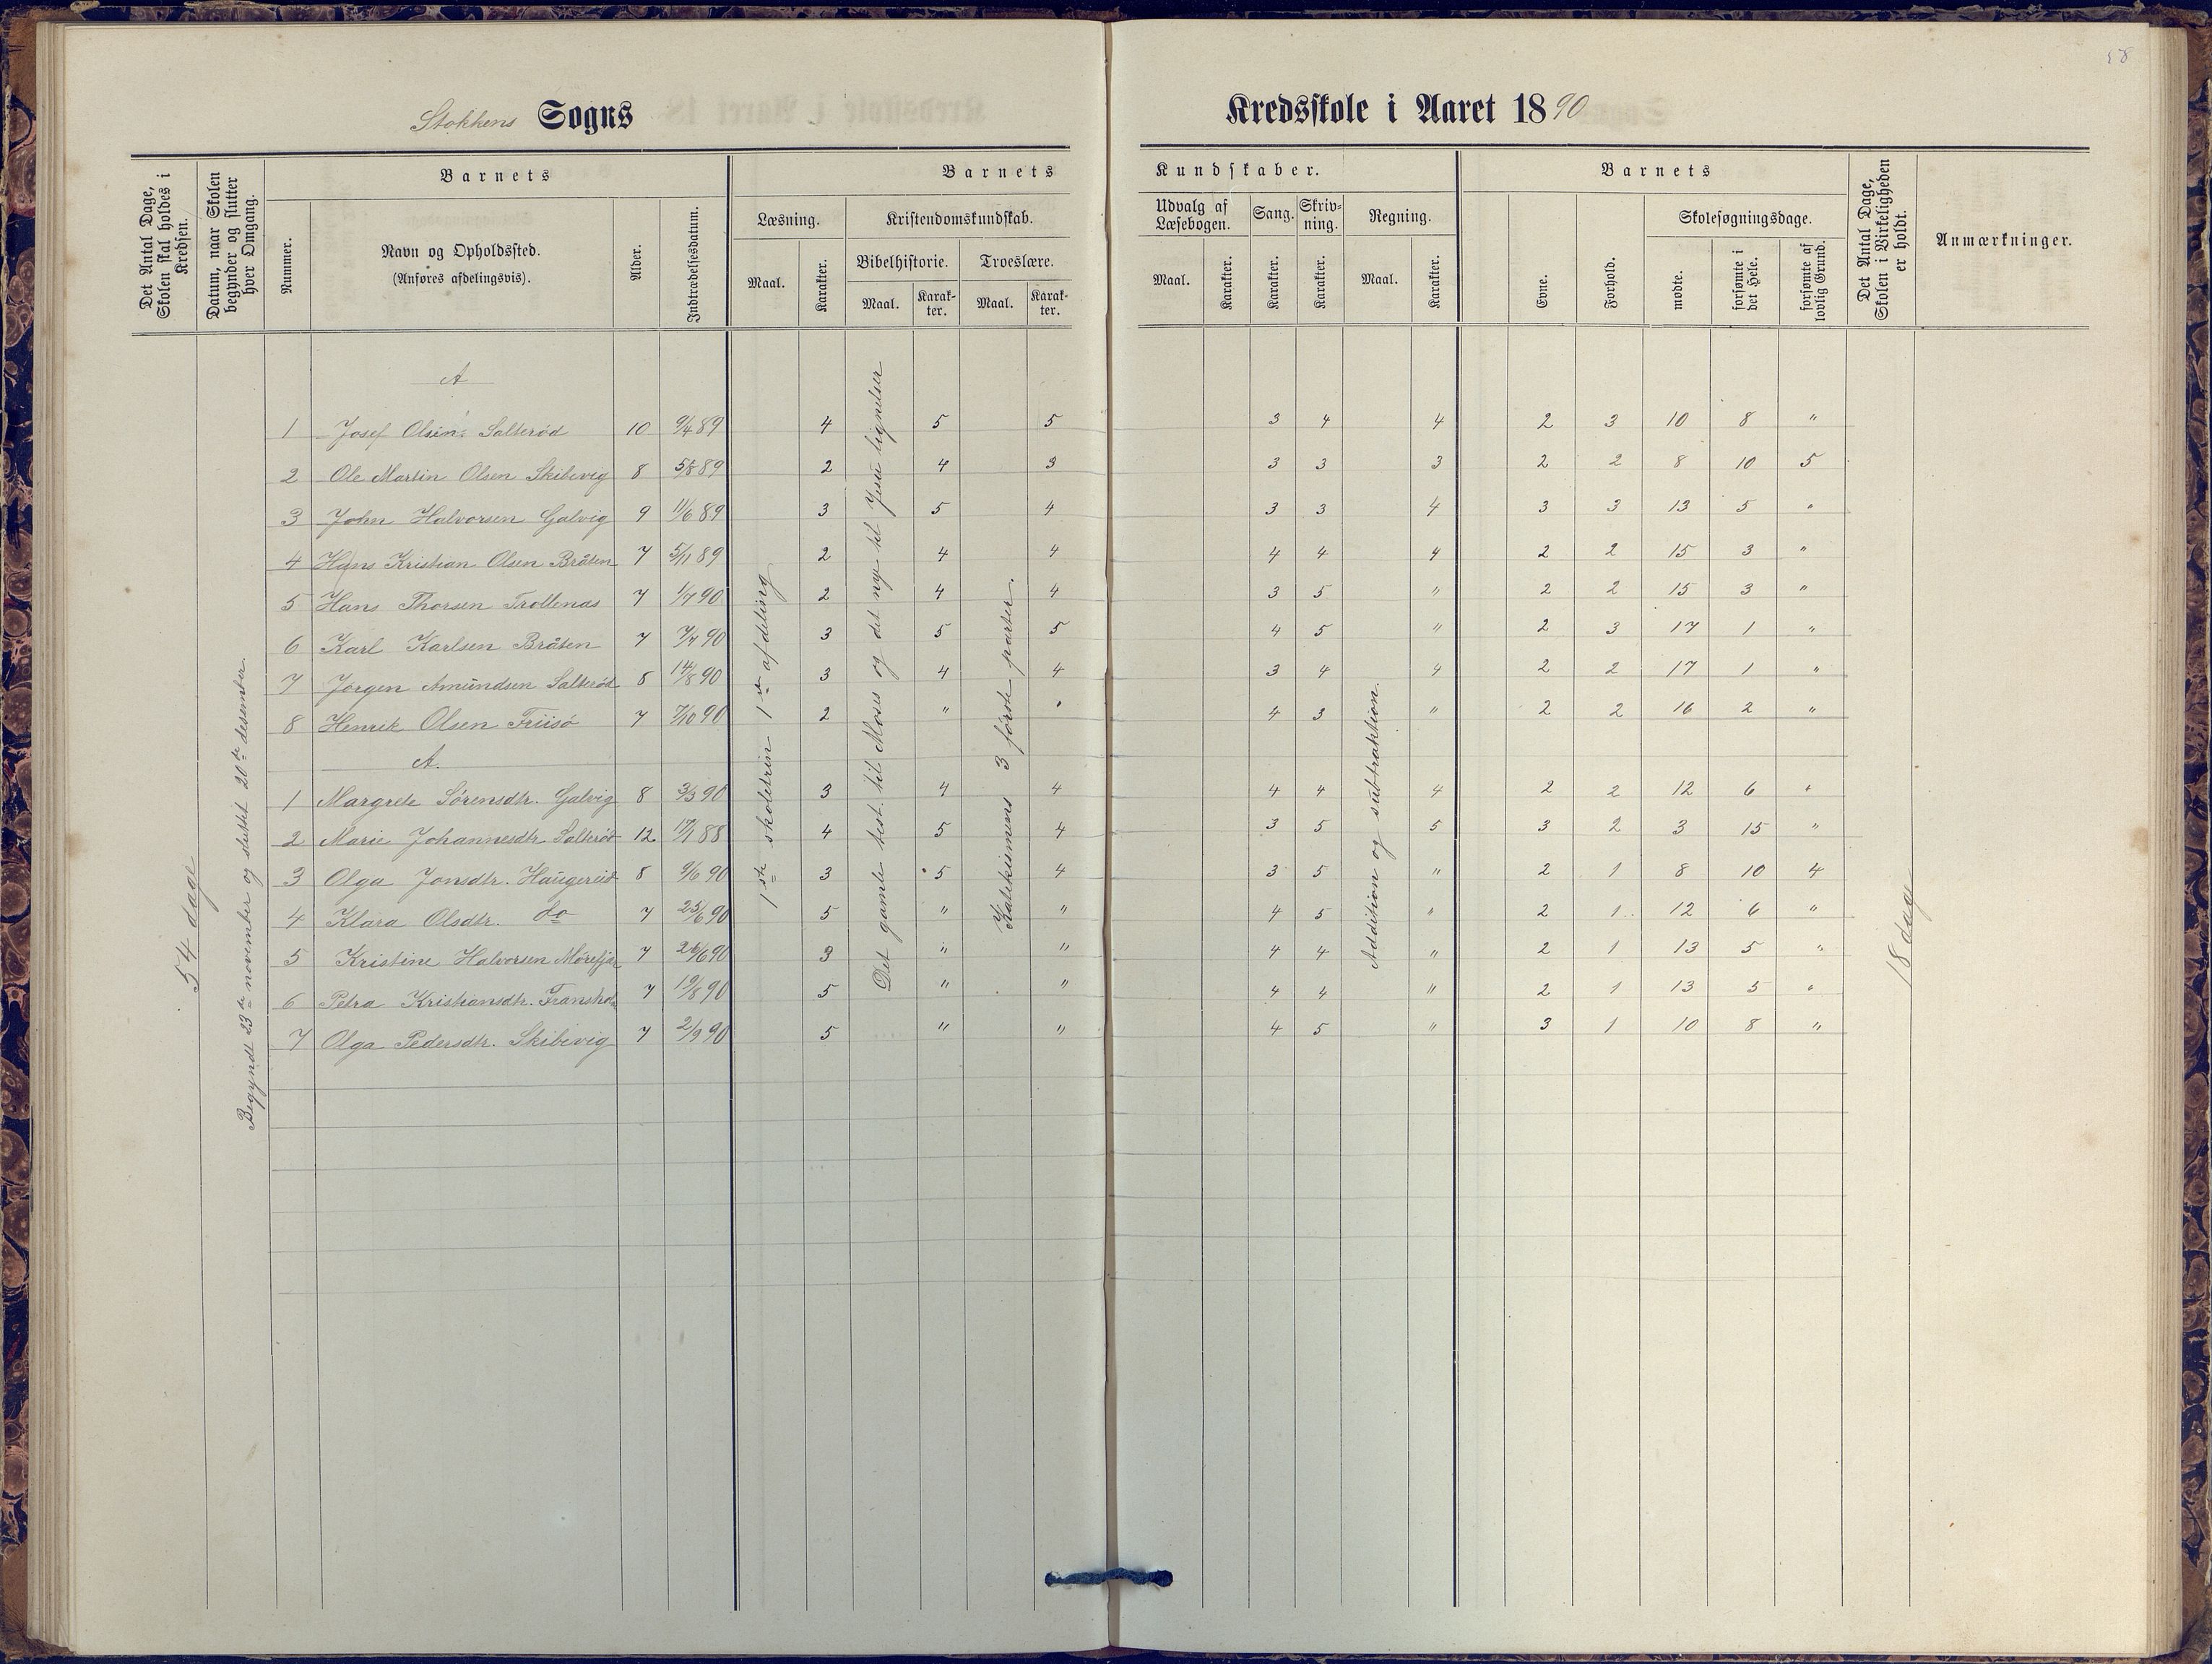 58
Stokkens Sogns Kredsskole i Aaret 1890
Det Antal Dage, Skolen skal holdes i Kredsen.
Datum, naar Skolen begynder og slutter hver Omgang.
Barnets
Nummer.
Navn og Opholdssted.
(Anføres afdelingsvis).
Alder.
Indtrædelsesdatum.
Barnets Kundskaber.
Læsning.
Maal.
Karakter.
Kristendomskundskab.
Bibelhistorie.
Maal.
Karakter.
Troeslære.
Maal.
Karakter.
Udvalg af Læsebogen.
Maal.
Karakter.
Sang.
Karakter.
Skrivning.
Karakter.
Regning.
Maal.
Karakter.
Barnets
Evne.
Forhold.
Skolesøgningsdage.
mødte.
forsømte i det Hele.
forsømte af lovlig Grund.
Det Antal Dage, Skolen i Virkeligheden er holdt.
Anmærkninger.
54 dage
Begyndt 23de november og sluttet 20de desember.
1ste skoletrin 1ste afdeling
Det gamle test. til Moses og det nye til Jesu lignelser
Katekismens 3 første parter.
Addition og subtraktion.
18 dage
A
1 Josef Olsen Salterød 10 9/4 89 4 5 5 3 4 4 2 3 10 8 "
2 Ole Martin Olsen Skibevig 8 5/8 89 2 4 3 3 3 3 2 2 8 10 5
3 John Halvorsen Galvig 9 11/6 89 3 5 4 3 3 4 3 3 13 5 "
4 Hans Kristian Olsen Bråten 7 5/11 89 2 4 4 4 4 4 2 2 15 3 "
5 Hans Thorsen Trollenæs 7 1/7 90 2 4 4 3 5 " 2 2 15 3 "
6 Karl Karlsen Bråten 7 7/7 90 3 5 5 4 5 " 2 3 17 1 "
7 Jørgen Amundsen Salterød 8 14/8 90 3 4 4 3 4 4 2 2 17 1 "
8 Henrik Olsen Friisø 7 7/10 90 2 " " 4 3 " 2 2 16 2 "
A.
1 Margrete Sørensdtr. Galvig 8 3/3 90 3 4 4 4 4 4 2 2 12 6 "
2 Marie Johannesdtr Salterød 12 17/1 88 4 5 4 3 5 5 3 2 3 15 "
3 Olga Jonsdtr. Haugerud 8 9/6 90 3 5 4 3 5 " 2 1 8 10 4
4 Klara Olsdtr. do 7 25/6 90 5 " " 4 5 " 2 1 12 6 "
5 Kristine Halvorsen Mørefjær 7 26/6 90 3 " " 4 4 " 2 1 13 5 "
6 Petra Kristiansdtr. 7 19/8 90 5 " " 4 4 " 2 1 13 5 "
7 Olga Pedersdtr. Skibevig 7 2/9 90 5 " " 4 5 " 3 1 10 8 "